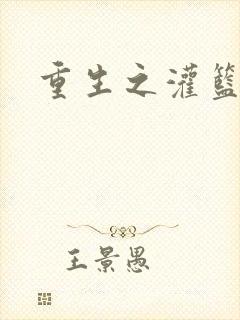 重生之灌篮
王景愚